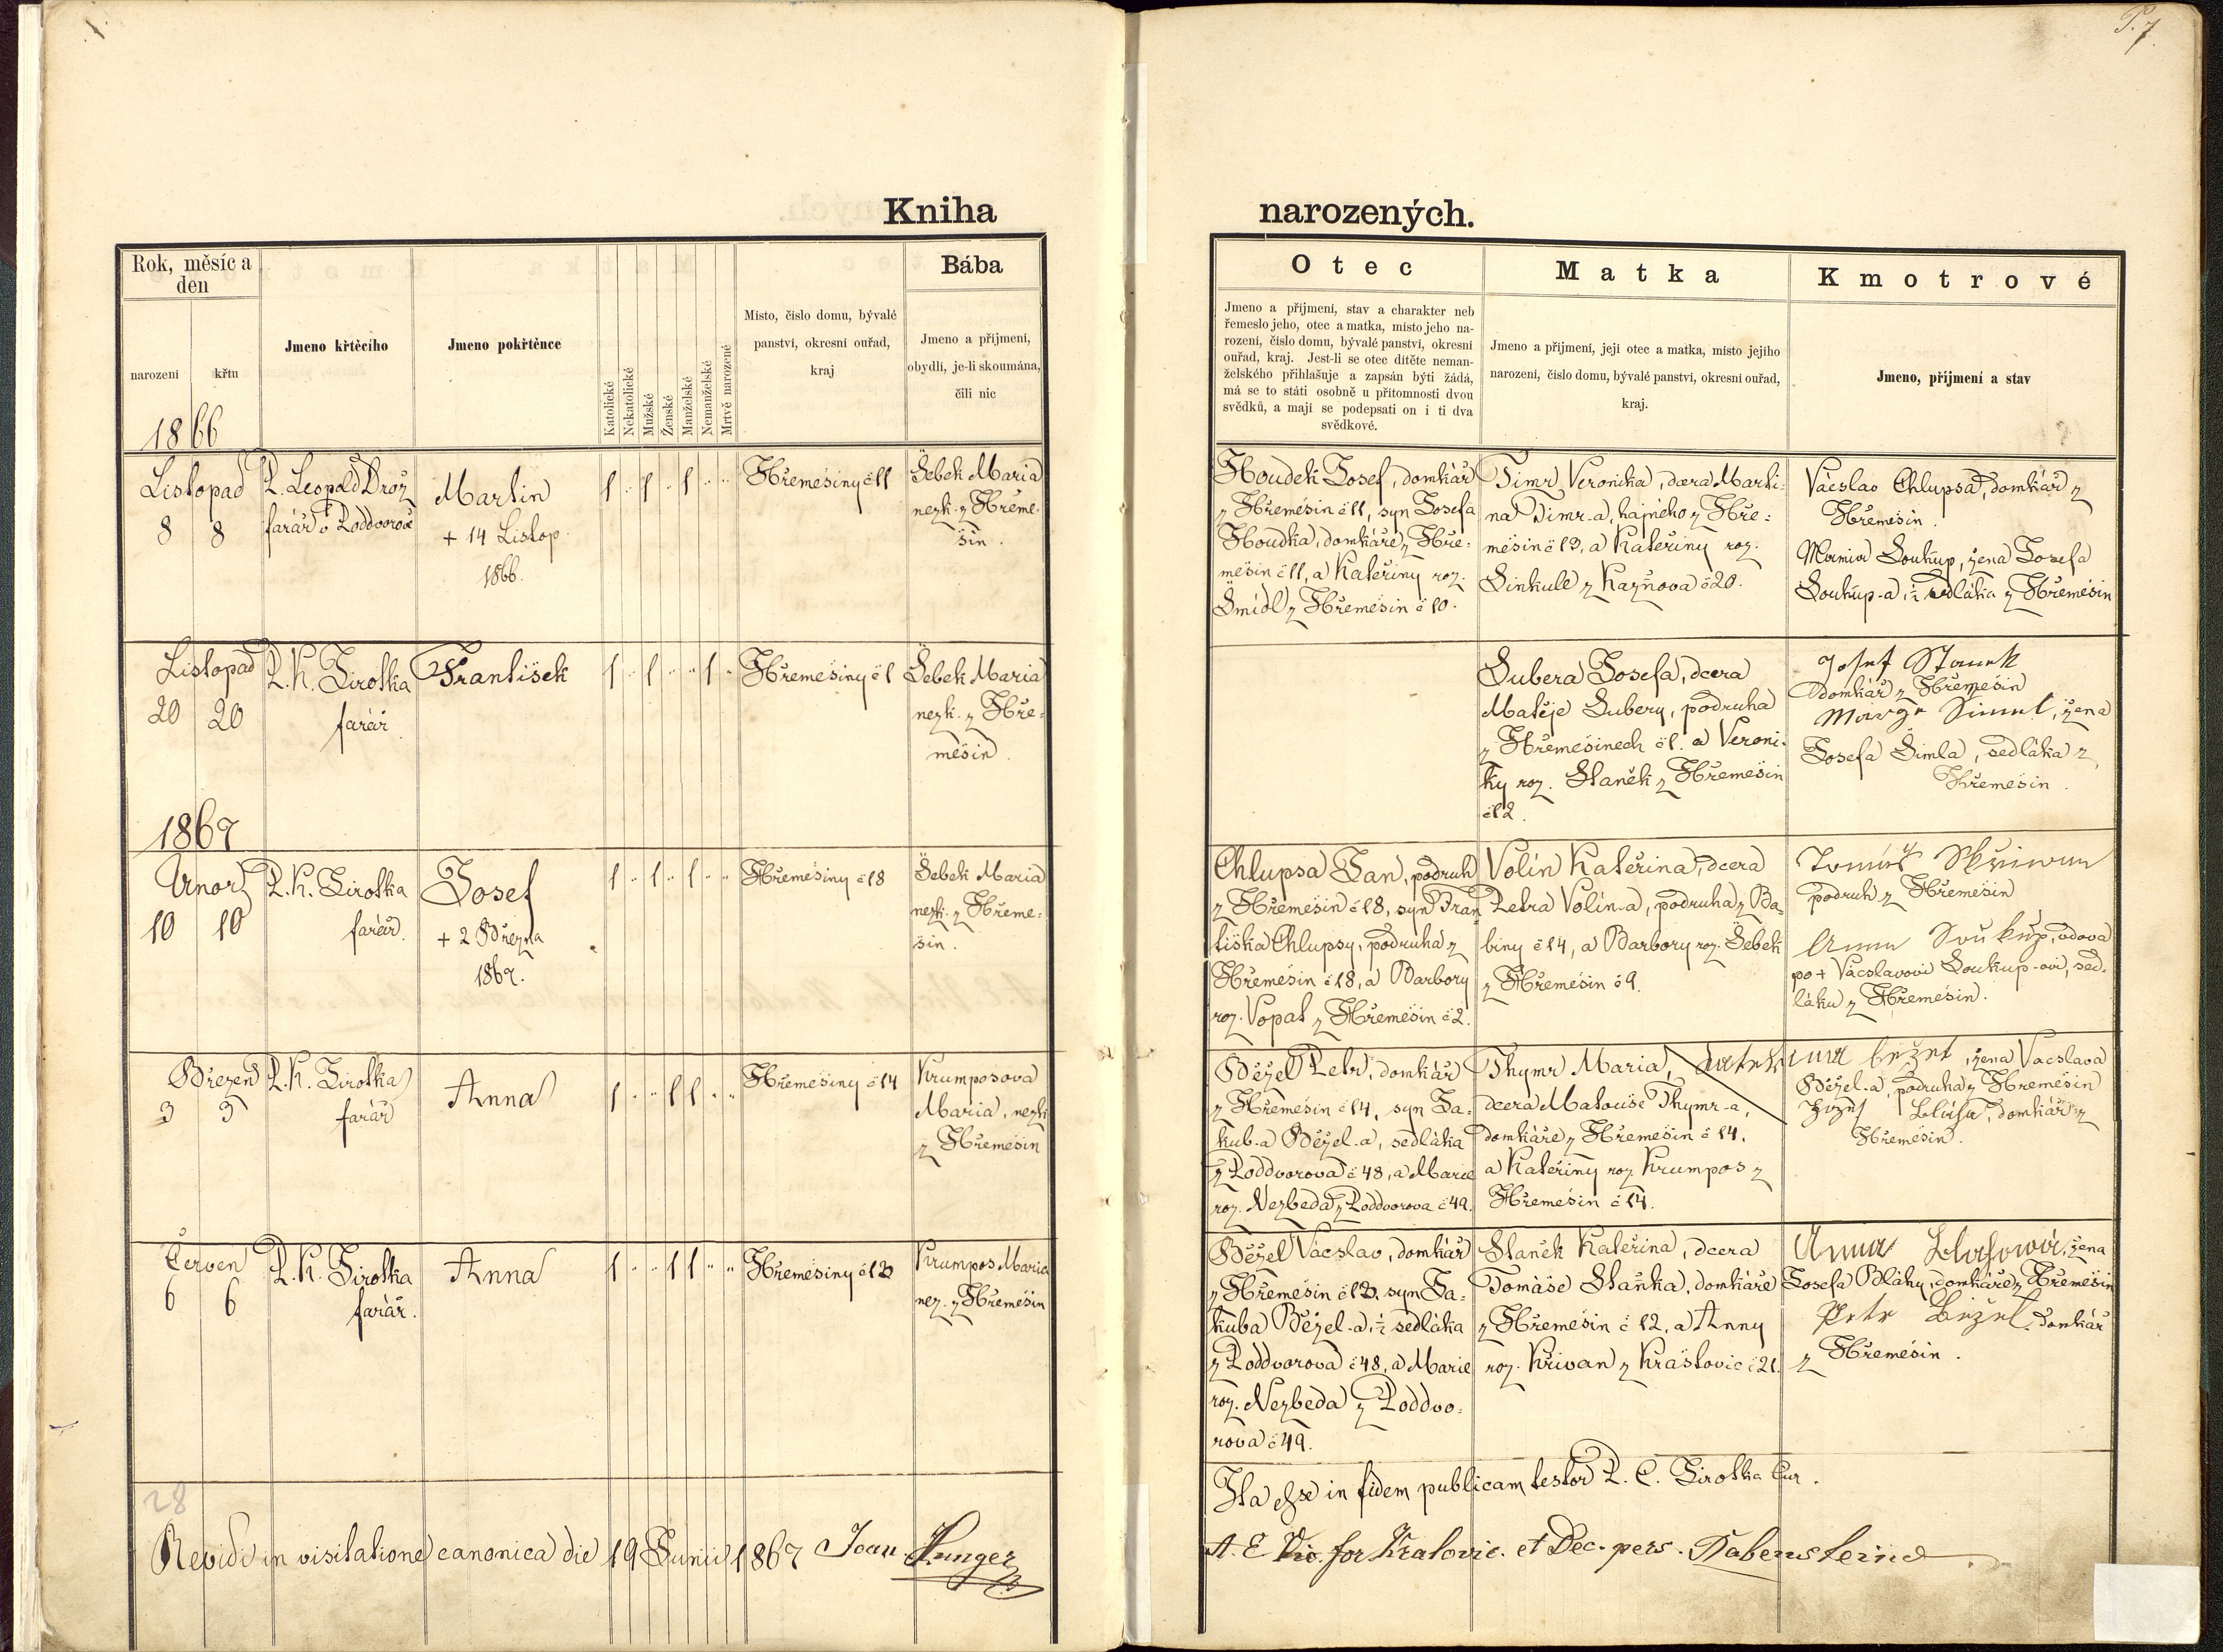 P. 7.
Kniha narozených.
Rok, měsíc a den
narození
křtu
Jmeno křtěcího
Jmeno pokřtěnce
Katolické
Nekatolické
Mužské
Ženské
Manželské
Nemanželské
Mrtvě narozené
Místo, číslo domu, bývalé
panství, okresní ouřad,
kraj
Bába
Jmeno a příjmení,
obydlí, je-li skoumána,
čili nic
Otec
Jmeno a příjmení, stav a charakter neb
řemeslo jeho, otec a matka, místo jeho na-
rození, číslo domu, bývalé panství, okresní
ouřad, kraj. Jest-li se otec dítěte neman-
želského přihlašuje a zapsán býti žádá,
má se to státi osobně u přítomnosti dvou
svědků, a mají se podepsati on i ti dva
svědkové.
Matka
Jmeno a příjmení, její otec a matka, místo jejího
narození, číslo domu, bývalé panství, okresní ouřad,
kraj.
Kmotrové
Jmeno, příjmení a stav
1866
Listopad
8 8
P. Leopold Drož
farář v Poddvorově
Martin
+ 14 Listop.
1866.
1 " 1 " 1 " "
Hřemešiny č 11
Šebek Maria
nezk. z Hřeme-
šin.
Houdek Josef, domkář
z Hřemešin č 11, syn Josefa
Houdka, domkáře z Hře-
mešin č 11, a Kateřiny roz.
Šmídl z Hřemešin č 10.
Timr Veronika, dcera Marti-
na Timr-a, hajného z Hře-
mešin č 13, a Kateřiny roz.
Sinkule z Kazňova č 20.
Václav Chlupsa, domkář z
Hřemešin.
Maria Soukup, žena Josefa
Soukup-a, ½ sedláka z Hřemešin
Listopad
20 20
P. K. Sirotka
farář
František
1 " 1 " " 1 "
Hřemešiny č 1
Šebek Maria
nezk. z Hře-
mešin.
Šubera Josefa, dcera
Matěje Šubery, podruha
z Hřemešinech č 1. a Veroni-
ky roz. Staněk z Hřemešin
č 12.
Josef Stanek
domkář z Hřemešin
Šimel, žena
Josefa Šimla, sedláka z
Hřemešin.
1867
Unor
10 10
P. K. Sirotka
farář.
Josef
+ 2 Března
1867.
1 " 1 " 1 " "
Hřemešiny č 18
Šebek Maria
nezk. z Hřeme-
šin.
Chlupsa Jan, podruh
z Hřemešin č 18, syn Fran
tiška Chlupsy, podruha z
Hřemešin č 18, a Barbory
roz. Vopat z Hřemešin č 2.
Volín Kateřina, dcera
Petra Volín-a, podruha z Ba-
biny č 14, a Barbory roz. Šebek
z Hřemešin č 9.
Tomáš Skřiwan
podruh z Hřemešin
Anna Soukúp, vdova
po + Václavovi Soukup-ovi, sed-
láku z Hřemešin.
Březen
3 3
P. K. Sirotka
farář
Anna
1 " " 1 1 " "
Hřemešiny č 14
Krumposova
Maria, nezk.
z Hřemešin
Běžel Petr, domkář
z Hřemešin č 14, syn Ja-
kub-a Běžel-a, sedláka
z Poddvorova č 48, a Marie
roz. Nezbeda z Poddvorova č 49.
Thymr Maria,
dcera Matouše Thymr-a,
domkáře z Hřemešin č 14,
a Kateřiny roz. Krumpos z
Hřemešin č 14.
bežel, žena Vacslava
Běžel-a, podruha z Hřemešin
domkář z
Hřemešin.
Červen
6 6
P. K. Sirotka
farář.
Anna
1 " " 1 1 " "
Hřemešiny č 12
Krumpos Maria
nez. z Hřemešin
Běžel Václav, domkář
z Hřemešin č 12. syn Ja-
kuba Běžel-a, ½ sedláka
z Poddvorova č 48, a Marie
roz. Nezbeda z Poddvo-
rova č 49.
Staněk Kateřina, dcera
Tomáše Staňka, domkáře
z Hřemešin č 12, a Anny
roz. Křivan z Kraštovic č 21.
Anna Blahowá, žena
Josefa Bláhy, domkáře z Hřemešin
Petr Běžel, domkář
z Hřemešin.
28
Ita esse in fidem publicam testor P. C. Sirotka Cur.
Revidi in visitatione canonica die 19 Junii 1867 Joan Hunger
A. E. Vic. for Kralovic. et Dec. pers. Rabensteine